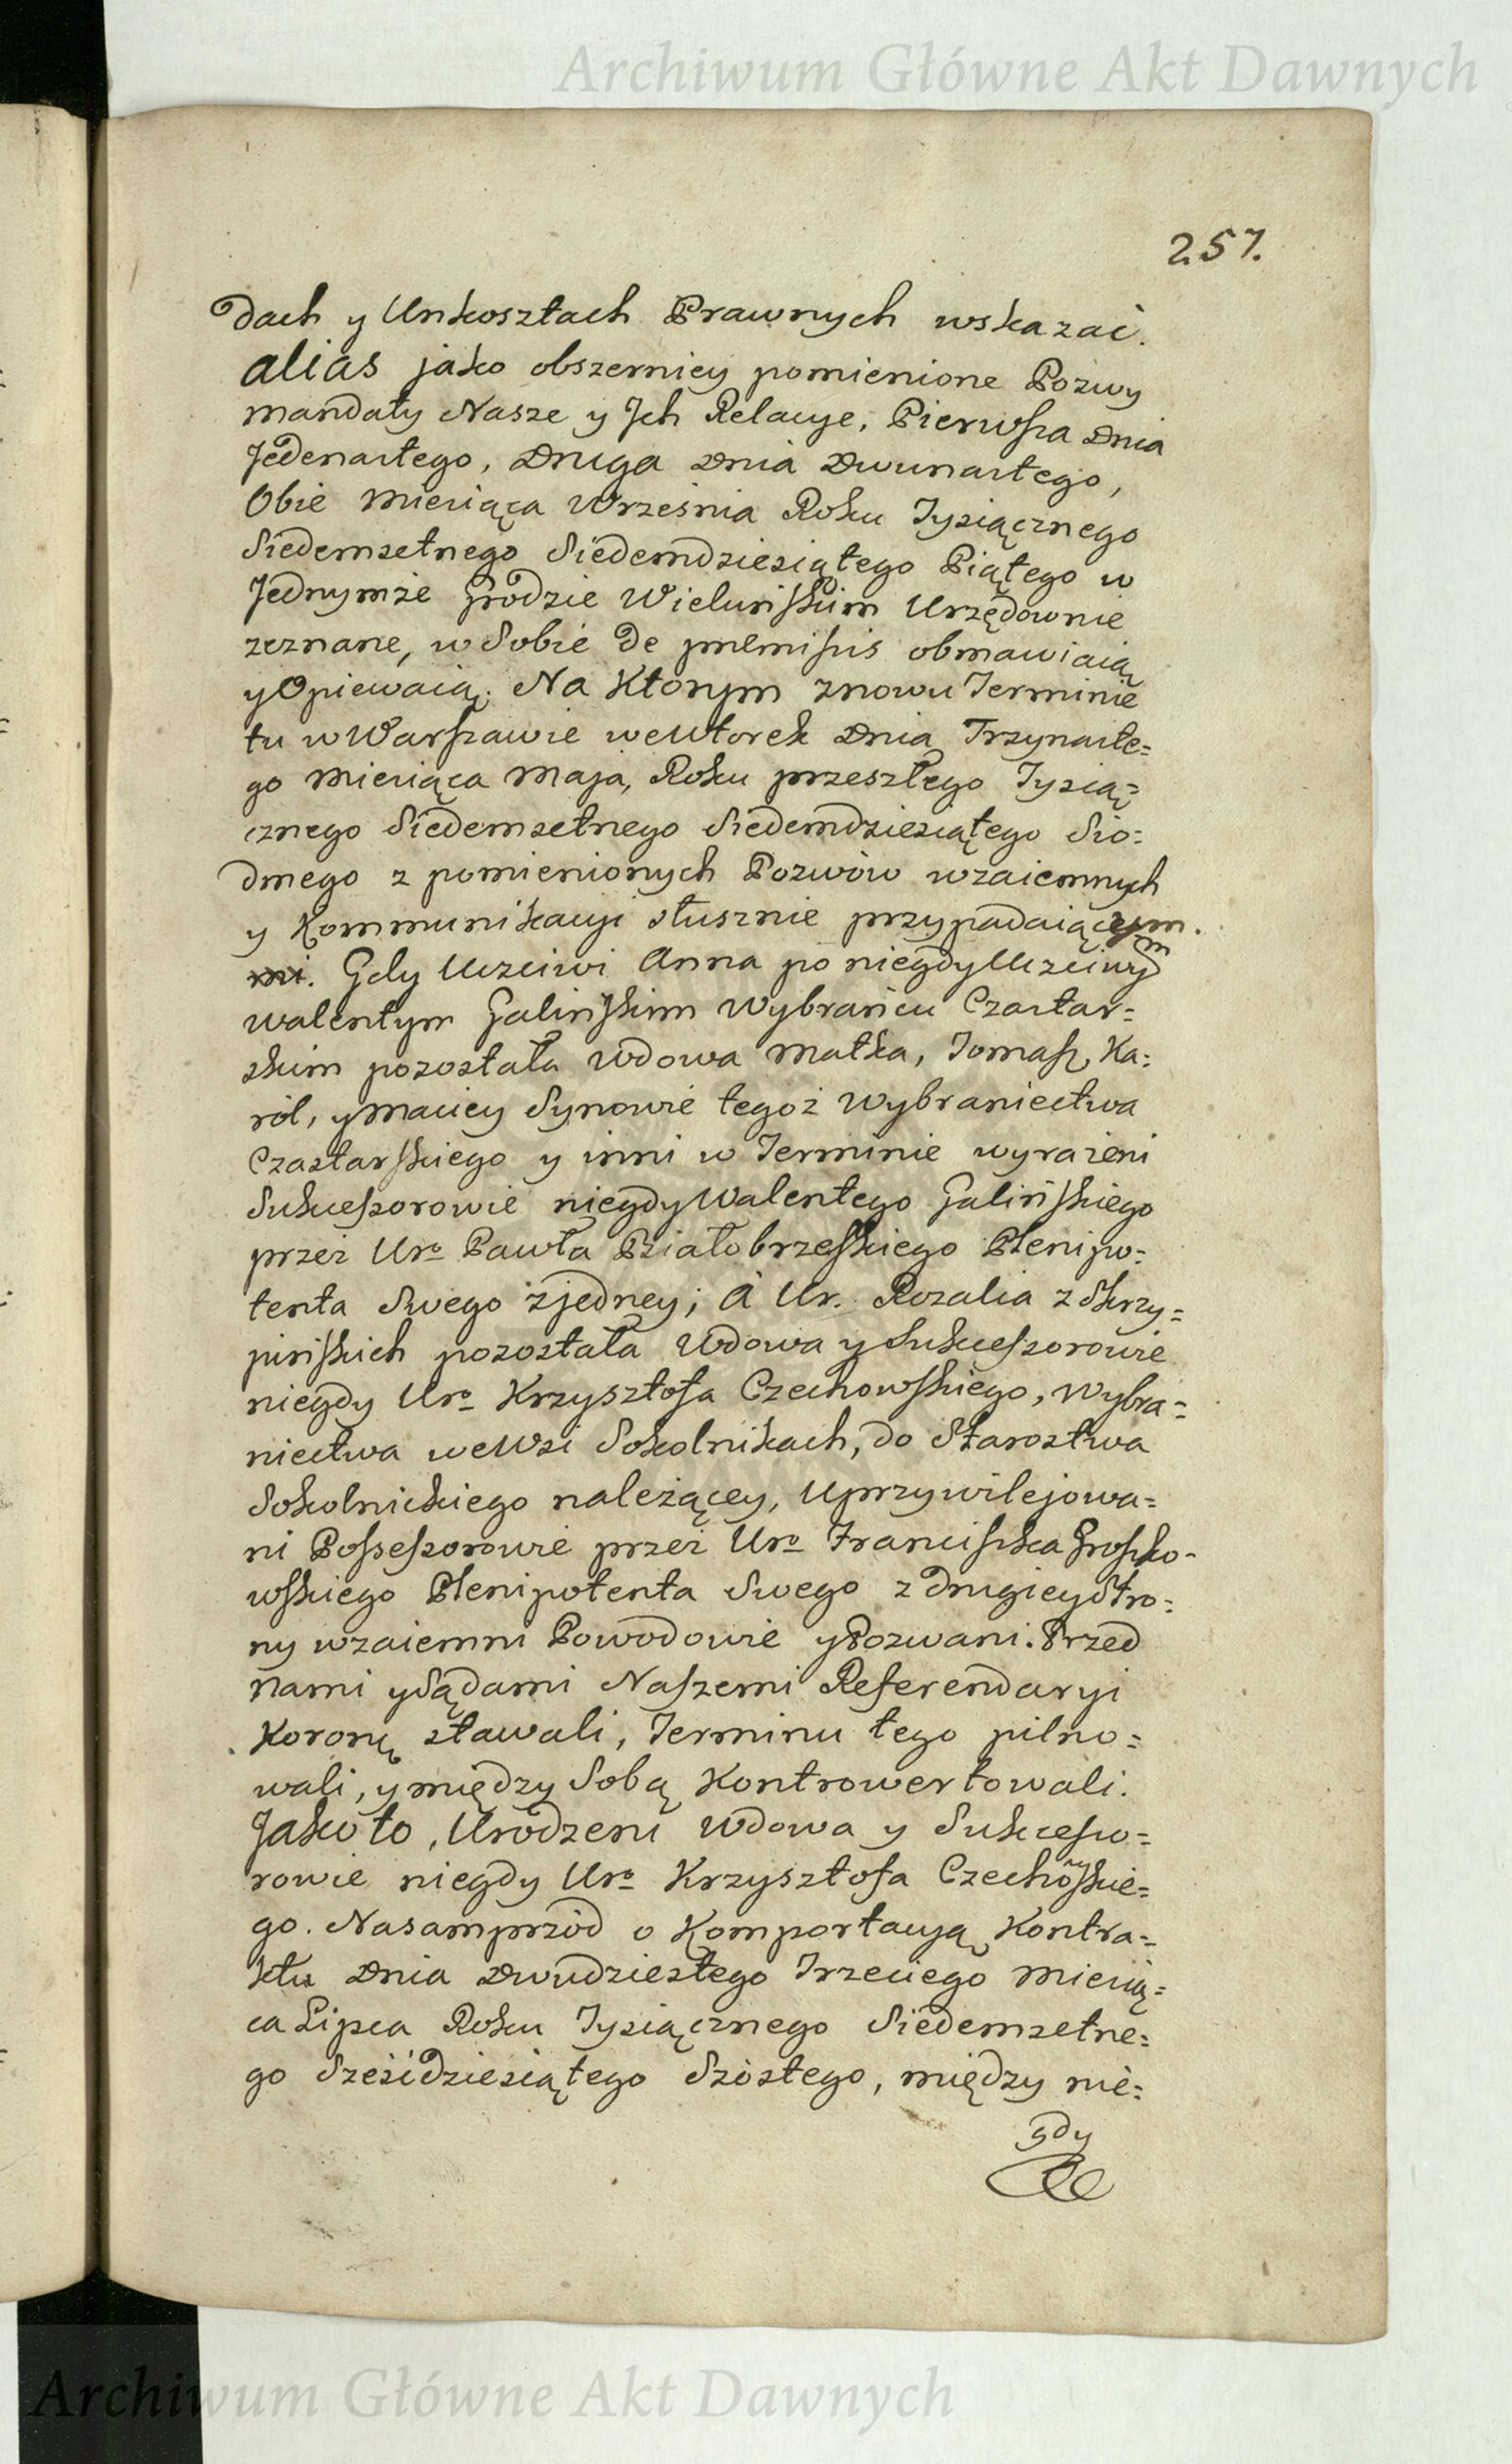 Archiwum Główne Akt Dawnych
257.
dach y Unkosztach Prawnych wskazać.
alias jako obszerniey pomienione Pozwy
mandaty Nasze y Jch Relacye, Pierwsza Dnia
Jedenastego, Druga Dnia Dwunastego,
Obie Miesiąca Września Roku Tysiącznego
Siedemsetnego Siedemdziesiątego Piątego w
Jednymże Grodzie Wieluńskim Urzędownie
zeznane, w Sobie de præmissis obmawiaią
y Opiewaią. Na Ktorym znowu Terminie
tu w Warszawie we Wtorek Dnia Trzynaste=
go Miesiąca Maja, Roku przeszłego Tysią=
cznego Siedemsetnego Siedemdziesiątego Sio=
dmego z pomienionych Pozwów wzaiemnych
y Kommunikacyi słusznie przypadaiącym.
Gdy Uczciwi Anna po niegdy Uczciwym
Walentym Galińskim Wybrańcu Czastar=
skim pozostała Wdowa Matka, Tomasz, Ka=
ról, y Maciey Synowie tegoż Wybraniectwa
Czastarskiego y inni w Terminie wyrażeni
Sukcessorowie niegdy Walentego Galińskiego
przez Uro Pawła Białobrzeskiego Plenipo=
tenta Swego z jedney; à Ur. Rozalia z Skrzy=
pińskich pozostała Wdowa y Sukcessorowie
niegdy Uro Krzysztofa Czechowskiego, Wybra=
niectwa we Wsi Sokolnikach, do Starostwa
Sokolnickiego należącey, Uprzywilejowa=
ni Possessorowie przez Uro Franciszka Groszko-
wskiego Plenipotenta Swego z drugiey Stro=
ny wzaiemni Powodowie y Pozwani. Przed
nami y Sądami Naszemi Referendaryi
Koronę stawali, Terminu tego pilno=
wali, y między Sobą Kontrowertowali.
Jako to, Urodzeni Wdowa y Sukcesso=
rowie niegdy Uro Krzysztofa Czechowskie=
go. Nasamprzód o Komportacyą Kontra=
ktu Dnia Dwudziestego Trzeciego Miesią=
ca Lipca Roku Tysiącznego Siedemsetne=
go Sześćdziesiątego Szóstego, między nie=
gdy
Archiwum Główne Akt Dawnych